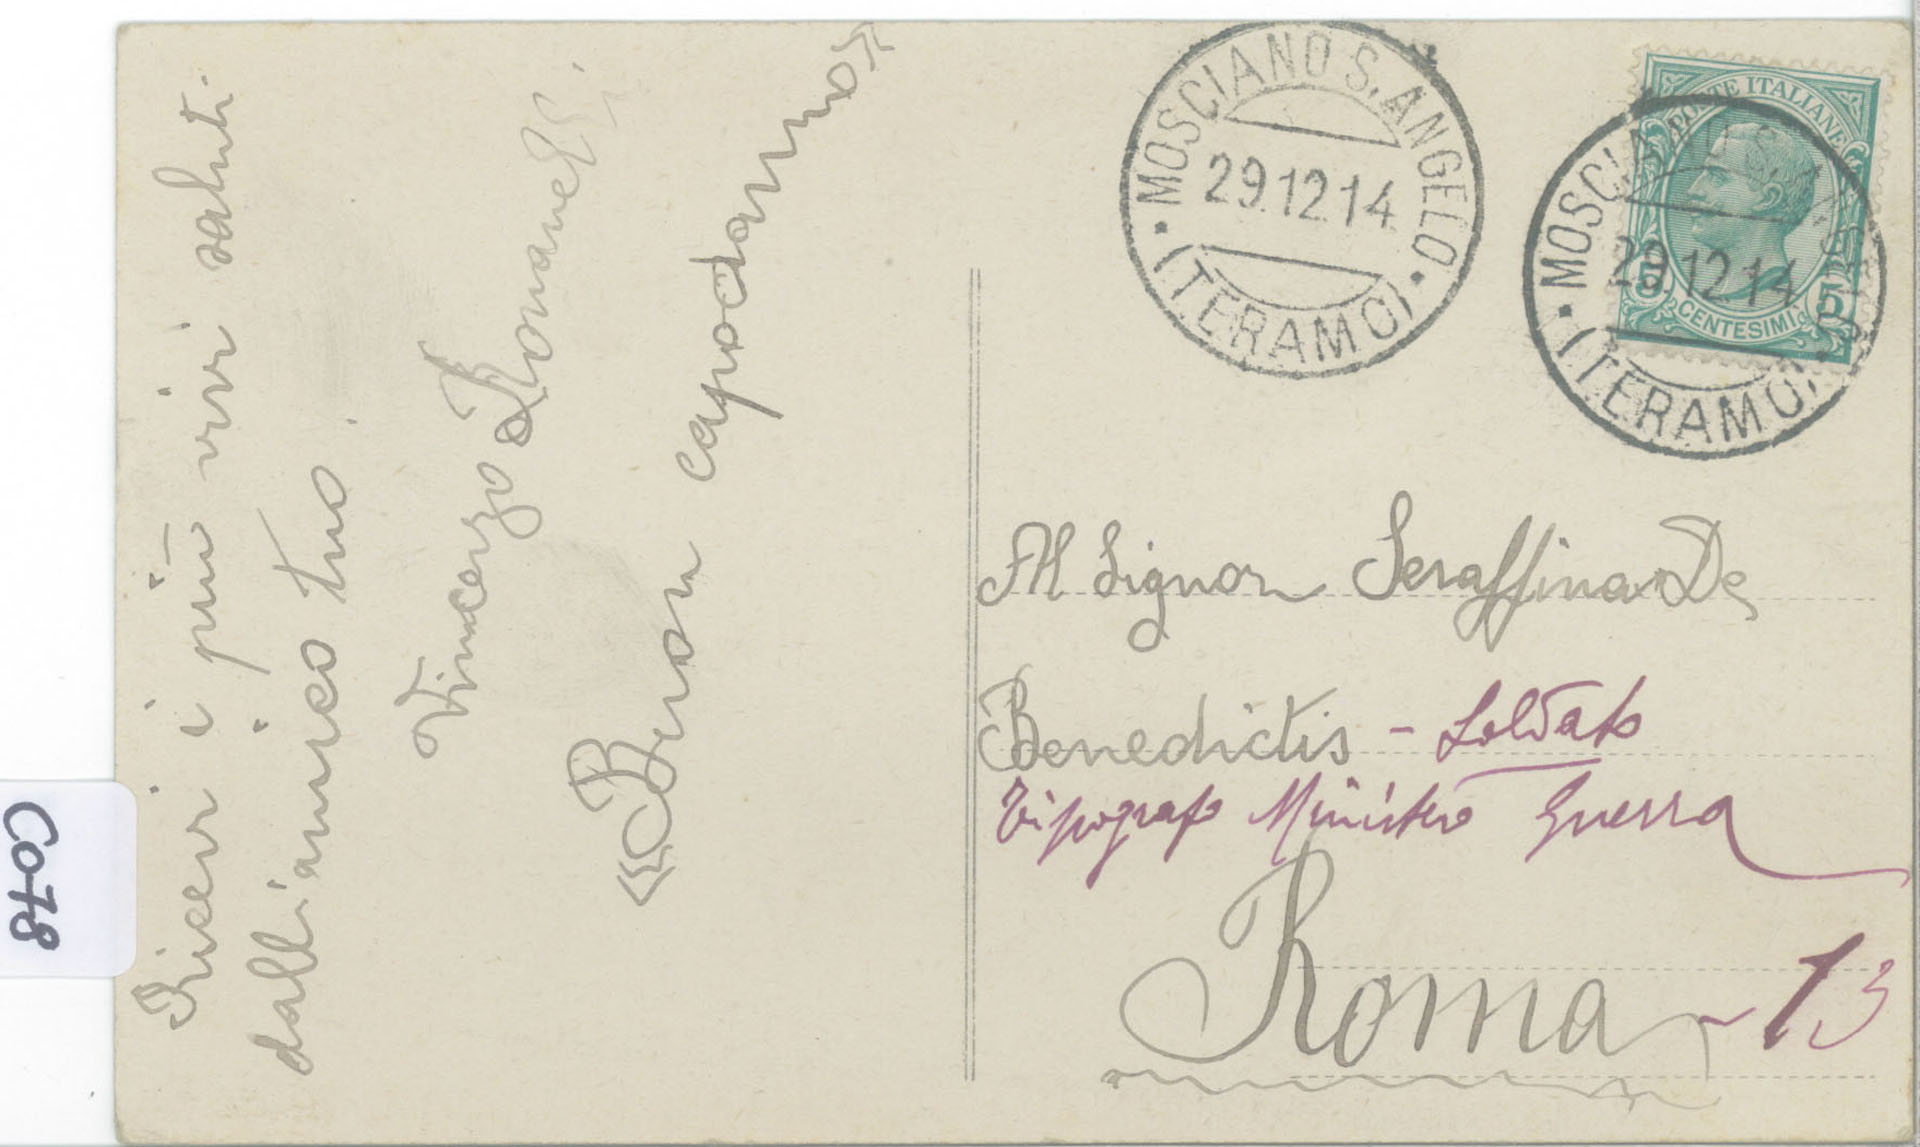 Ricevi i più vivi saluti
dall'amico tuo.
Vincenzo Romanelli
"Buon capodanno"
MOSCIANO S. ANGELO
29.12.14
(TERAMO)
POSTE ITALIANE
5 CENTESIMI 5
MOSCIANO S. ANGELO
29.12.14
(TERAMO)
Al Signor Seraffina De
Benedictis - Soldato
Tipografo Ministero Guerra
Roma - 13
CO78